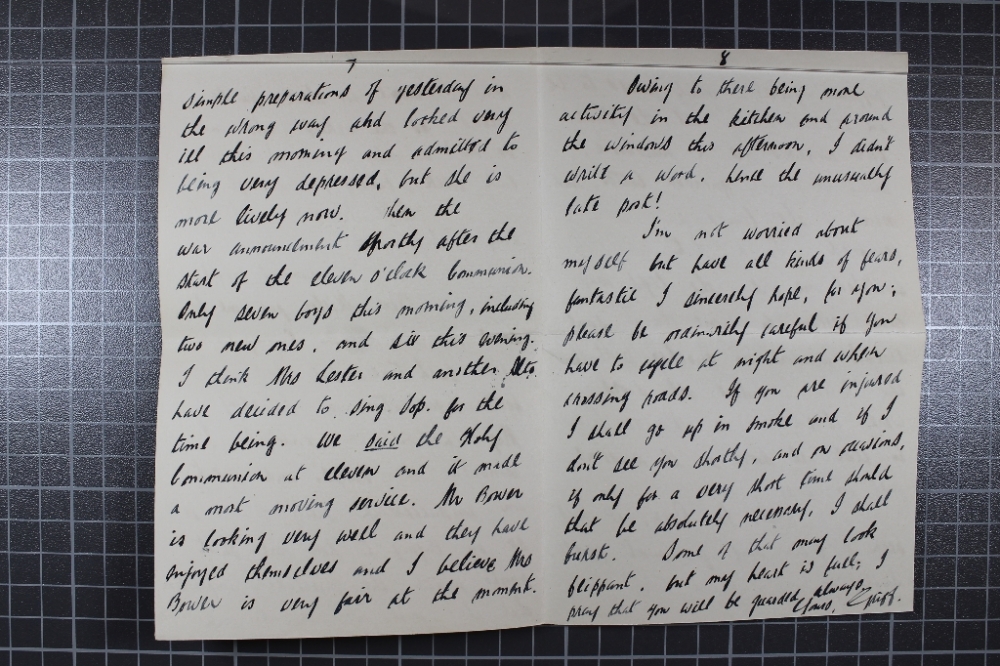 7
simple preparations of yesterday in
the wrong way and looked very
ill this morning and admitted to
being very depressed, but she is
more lively now. Then the
war announcement shortly after the
start of the eleven o'clock Communion.
Only seven boys this morning, including
two new ones, and six this evening.
I think Mrs Lester and another
have decided to sing Sop. for the
time being. We said the Holy
Communion at eleven and it made
a most moving service. Mr Bower
is looking very well and they have
enjoyed themselves and I believe Mrs
Bower is very fair at the moment.
8
Owing to there being more
activity in the kitchen and around
the windows this afternoon, I didn't
write a word, hence the unusually
late post!
I'm not worried about
myself but have all kinds of fears,
fantastic I sincerely hope, for you;
please be ordinarily careful if you
have to cycle at night and when
crossing roads. If you are injured
I shall go up in smoke and if I
don't see you shortly, and on occasions,
if only for a very short time should
that be absolutely necessary, I shall
burst. Some of that may look
flippant, but my heart is full; I
pray that you will be guarded always
Yours,